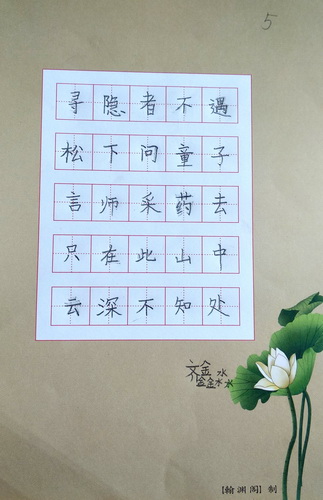 5
寻隐者不遇
松下问童子
言师采药去
只在此山中
云深不知处
齐鑫淼
【翰渊阁】制